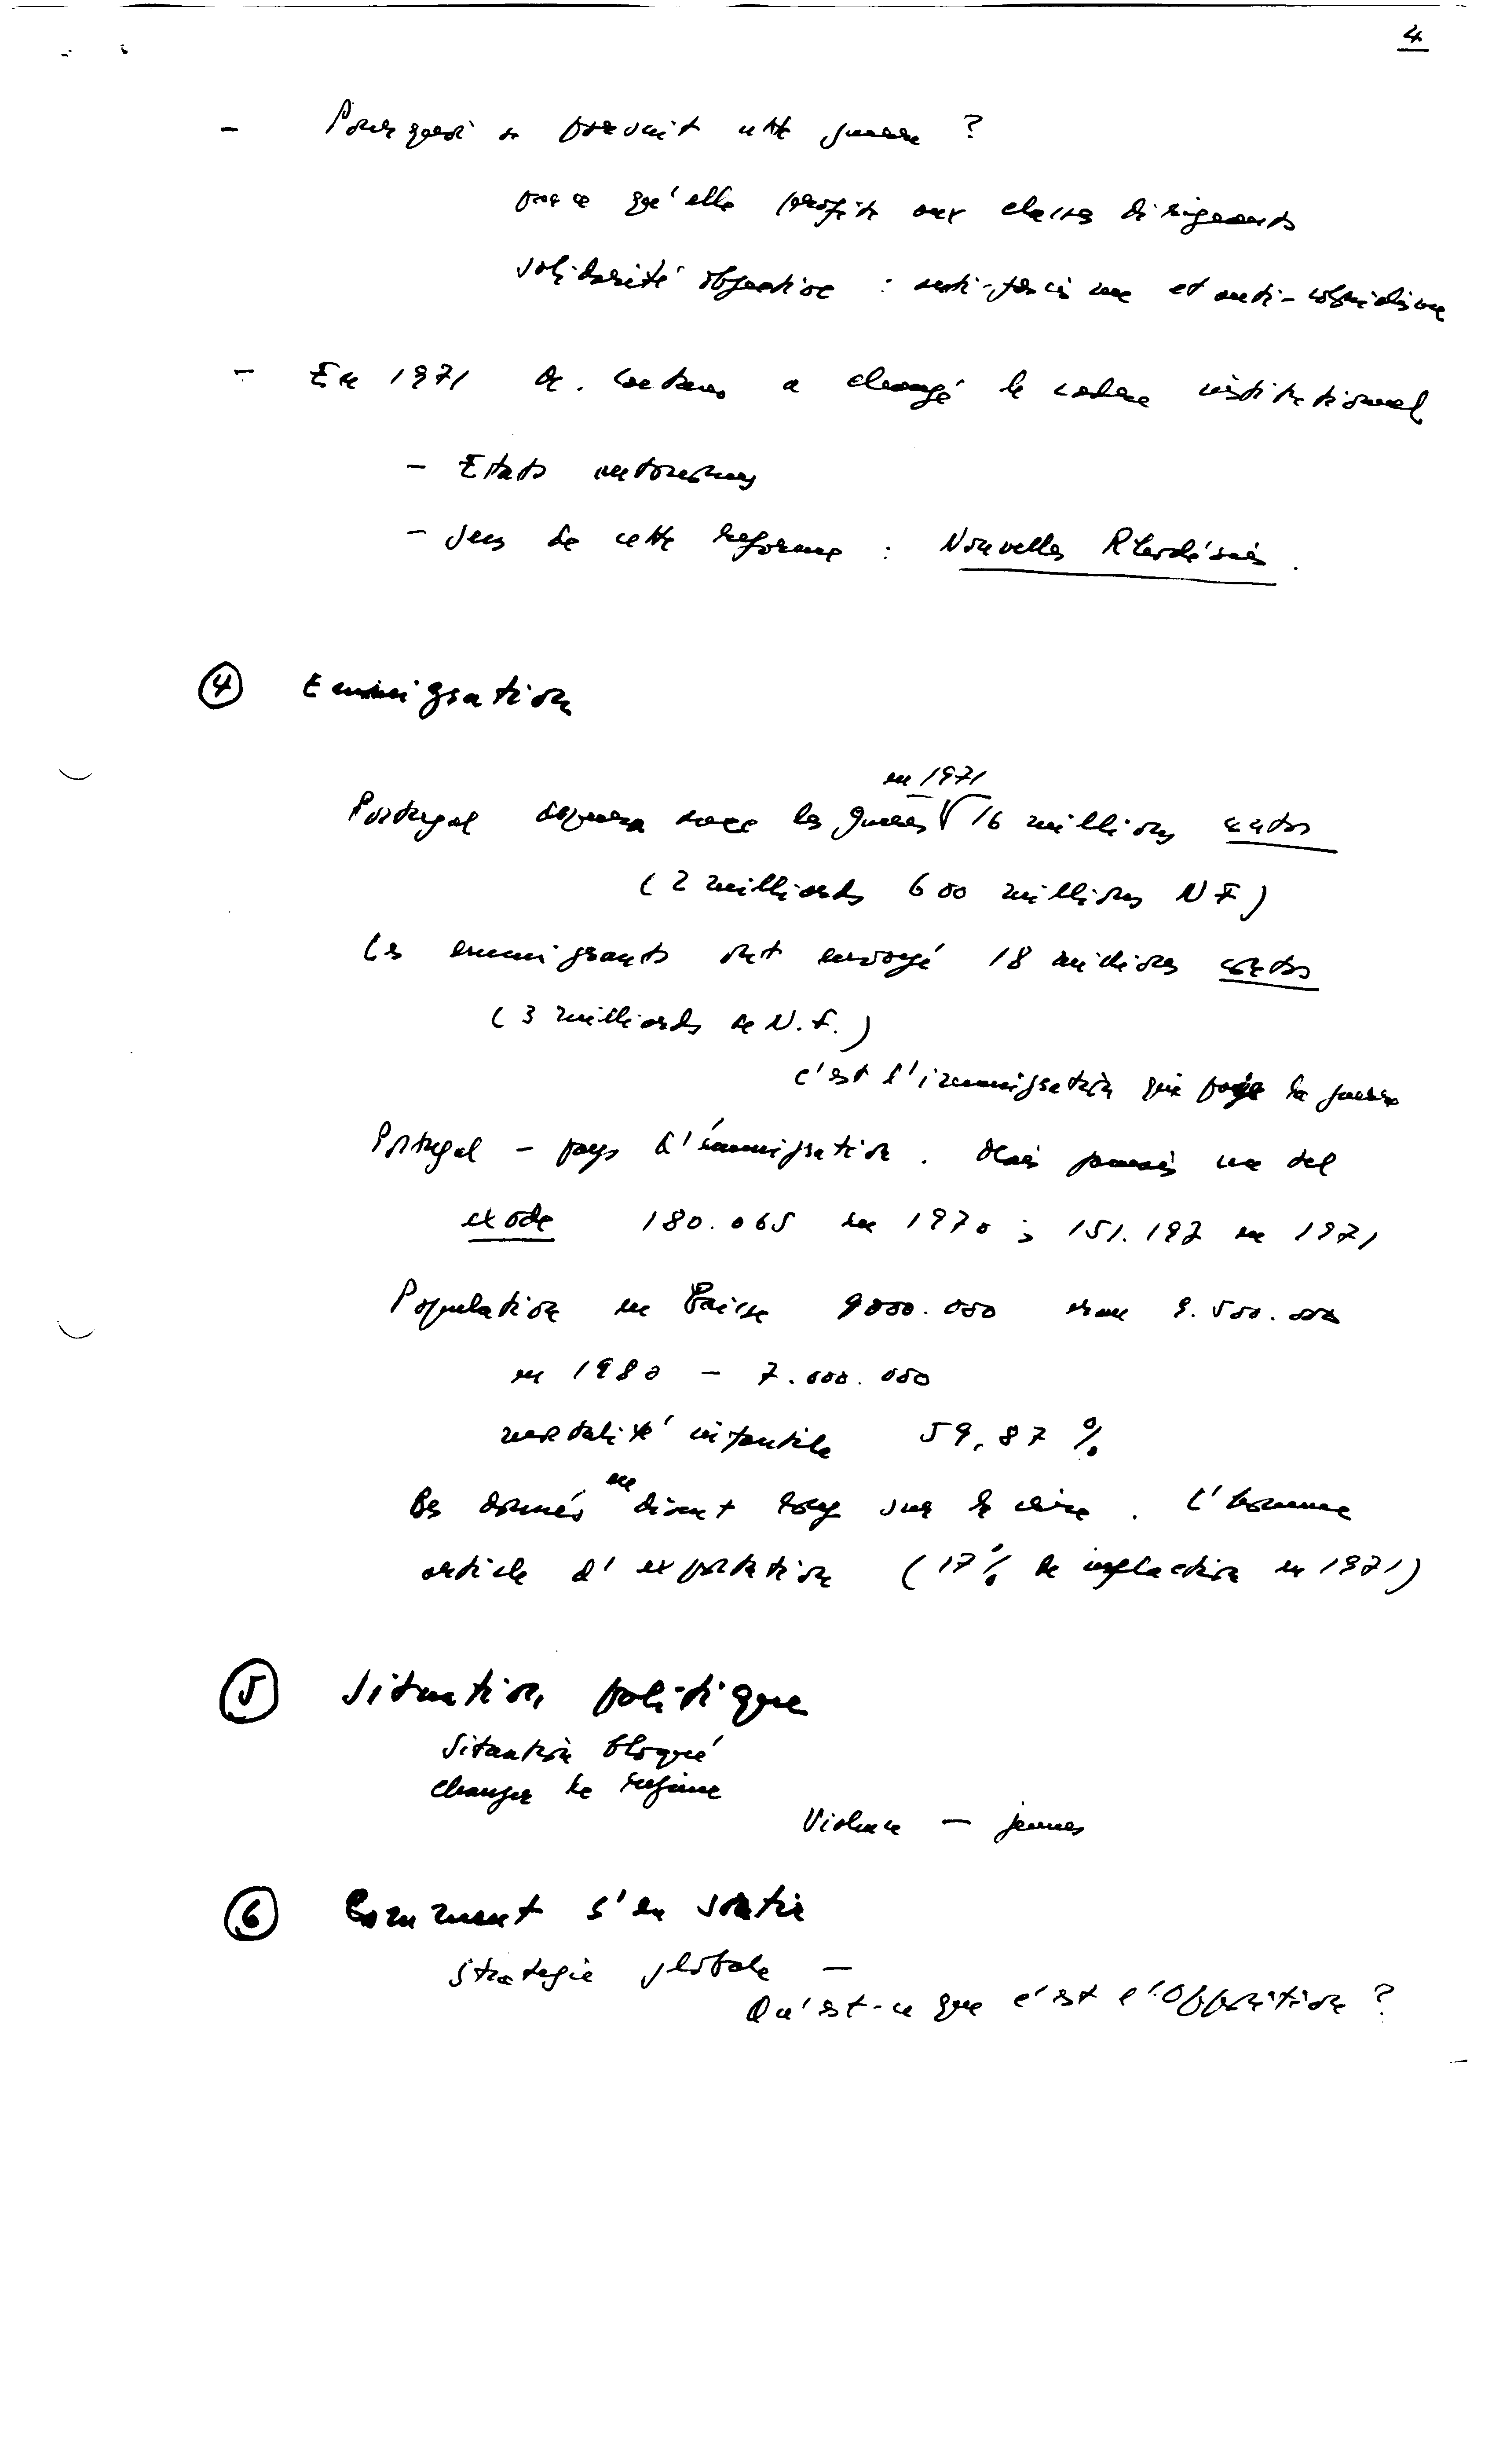 4
- Pourquoi on poursuit cette guerre ?
parce qu'elle profite aux classes dirigeants
solidarité objective : anti-fascisme et anti-colonialisme
- En 1971 M. Caetano a changé le cadre institutionnel
- Etats autonomes
- sens de cette reforme : Nouvelles Rhodésies.
4 Emmigration
en 1971
Portugal dépensa avec les guerres 16 millions contos
(2 milliards 600 millions N F)
Les emmigrants ont envoyé 18 millions contos
(3 milliards de N.F.)
c'est l'immigration que paye la guerre
Portugal - pays d'émmigration. Mais jamais un tel
exode 180.065 en 1970 ; 151.197 en 1971
Population en baisse 9000.000 9.500.000
en 1980 - 7.000.000
mortalité infantile 59,87 %
en
Ces donnés disent long sur la crise. L'homme
article d'exportation (17% de inflaction en 1971)
5 Situation politique
Situation bloqué
changer de regime
Violence - jeunes
6 Comment s'en sortir
strategie globale -
Qu'est-ce que c'est l'Opposition ?